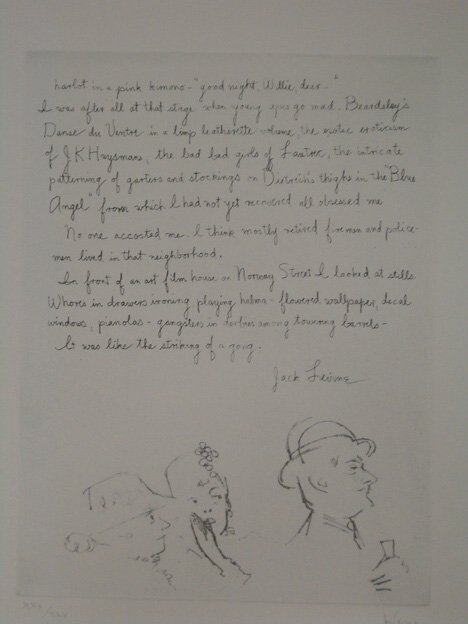 harlot in a pink kimono - "good night, Willie, dear."
I was after all at that stage when young eyes go mad. Beardsley's
Danse du Ventre in a limp leatherette volume, the mystic eroticism
of J K Huysmans, the bad bad girls of Lautrec, the intricate
patterning of garters and stockings on Dietrich's thighs in the "Blue
Angel" from which I had not yet recovered all obsessed me
No one accosted me. I think mostly retired firemen and police-
men lived in that neighborhood.
In front of an art film house on Norway Street I looked at stills
Whores in drawers playing halma - flowered wallpaper, decal
windows, pianolas - gangsters in derbies among towering barrels -
It was like the striking of a gong.
Jack Levine
XXV